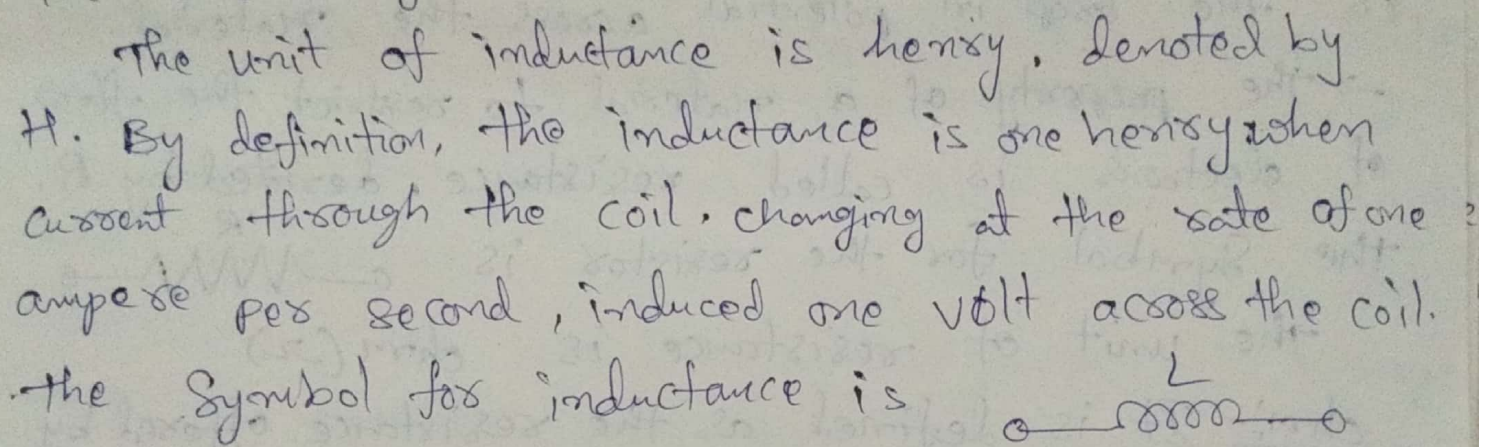 The unit of inductance is henry, denoted by
H. By definition, the inductance is one henry when
current through the coil, changing at the rate of one
ampere per second, induced one volt across the coil.
the Symbol for inductance is
L